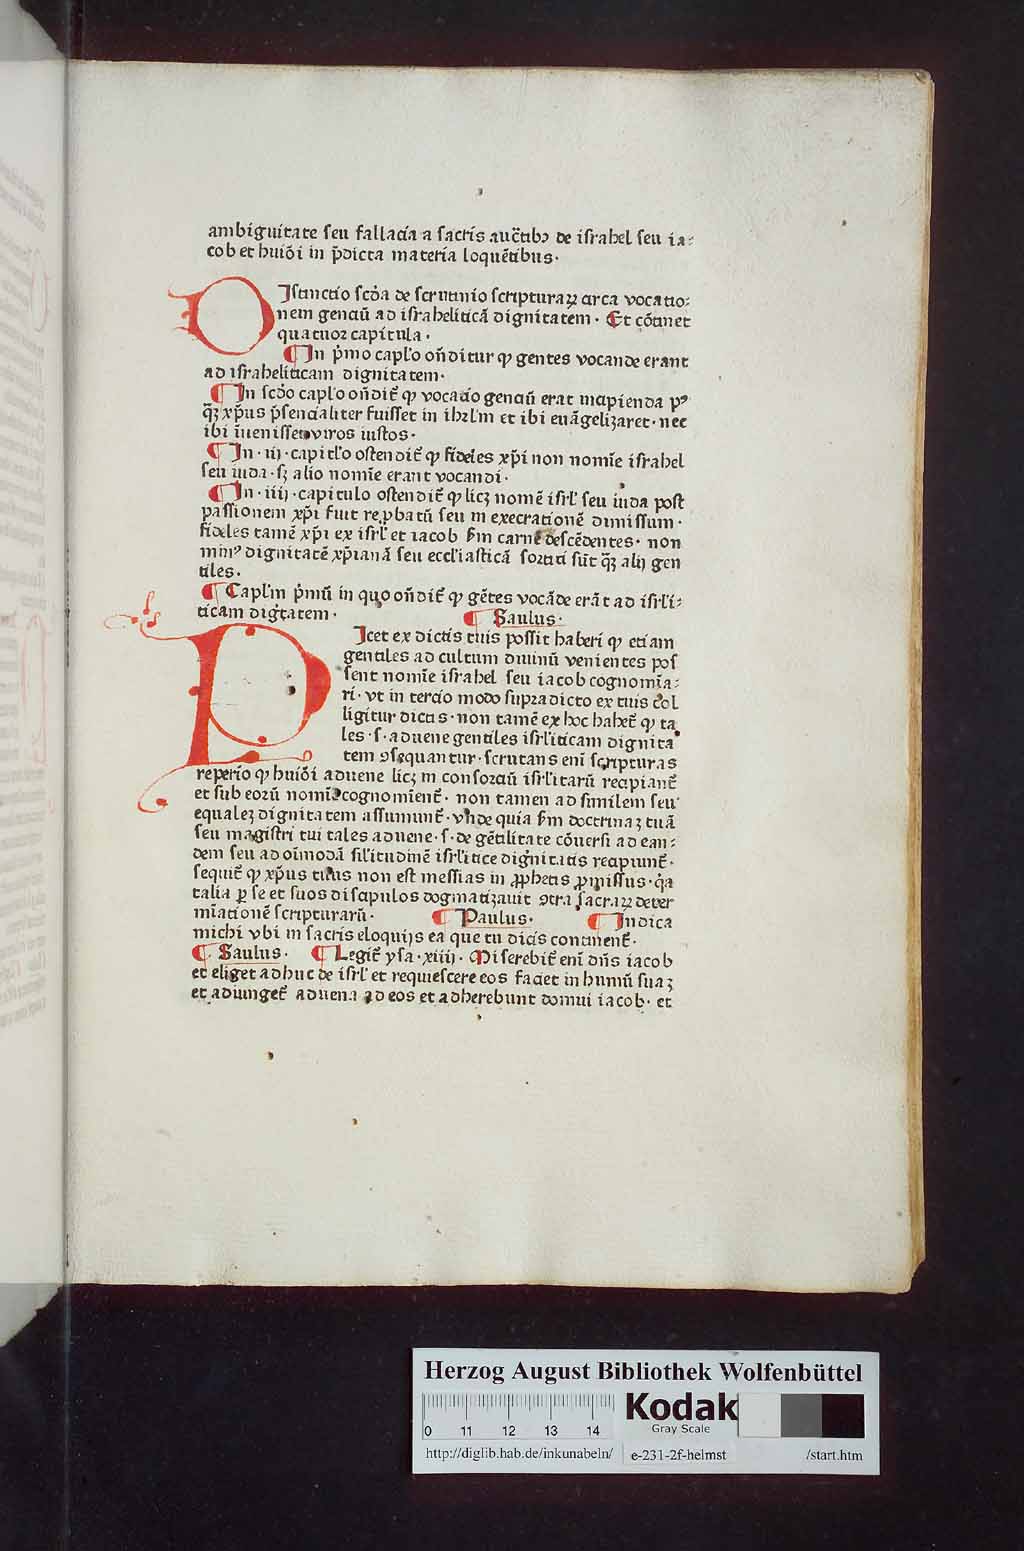 ambiguitate seu fallacia a sacris auctibꝯ de israhel seu ia⸗
cob et huiōi in p̄dicta materia loquētibus·
DIstinctio scd̄a de scrutinio scripturaꝝ circa vocatio⸗
nem genciū ad israheliticā dignitatem· Et cōtinet
quatuor capitula·
¶In p̄mo capl̄o on̄ditur ꝙ gentes vocande erant
ad israheliticam dignitatem·
¶In scd̄o capl̄o on̄dit̄ ꝙ vocacio genciū erat incipienda pꝰ
q̄ꝫ xp̄us p̄sencialiter fuisset in ihrl̄m et ibi euāgelizaret· nec
ibi īuenisset viros iustos·
¶In·iij·capitl̄o ostendit̄ ꝙ fideles xp̄i non nomīe israhel
seu iuda·sꝫ alio nomīe erant vocandi·
¶In·iiij·capitulo ostendit̄ ꝙ licꝫ nomē isrl̄ seu iuda post
passionem xp̄i fuit rep̱batū seu in execrationē dimissum·
fideles tamē xp̄i ex isrl̄ et iacob s̄m carnē descēdentes· non
minꝰ dignitatē xp̄ianā seu eccl̄iasticā sortiti sūt q̄ꝫ alij gen
tiles·
¶Capl̄m p̄mū in quo on̄dit̄ ꝙ gētes vocāde erāt ad isrl̄i⸗
ticam diḡtatem· ¶Saulus·
LIcet ex dictis tuis possit haberi ꝙ etiam
gentiles ad cultum diuinū venientes pos
sent nomīe israhel seu iacob cognomīa⸗
ri·vt in tercio modo supradicto ex tuis col
ligitur dictis·non tamē ex hoc habet̄ ꝙ ta
les·s·aduene gentiles isrl̄iticam dignita
tem ꝯsequantur·scrutans enī scripturas
reperio ꝙ huiōi aduene licꝫ in consorciū isrl̄itarū recipiant̄
et sub eorū nomīe cognomīent̄· non tamen ad similem seu
equaleꝫ dignitatem assumunt̄·vnde quia s̄m doctrinaꝫ tuā
seu magistri tui tales aduene·s·de gētilitate cōuersi ad ean⸗
dem seu ad oīmodā sil̄itudinē isrl̄itice diḡnitatis recipiunt̄·
sequit̄ ꝙ xp̄us tuus non est messias in ꝓphetis ꝓmissus·q̄a
talia ꝑ se et suos discipulos dogmatizauit ꝯtra sacraꝝ deter
mīationē scripturarū· ¶Paulus· ¶Indica
michi vbi in sacris eloquijs ea que tu dicis continent̄·
¶Saulus· ¶Legit̄ ysa·xiiij·Miserebit̄ enī dn̄s iacob
et eliget adhuc de isrl̄ et requiescere eos faciet in humū suaꝫ
et adiunget̄ aduena ad eos et adherebunt domui iacob· et
Herzog August Bibliothek Wolfenbüttel
0 11 12 13 14
Kodak
Gray Scale
http://diglib.hab.de/inkunabeln/ e-231-2f-helmst /start.htm